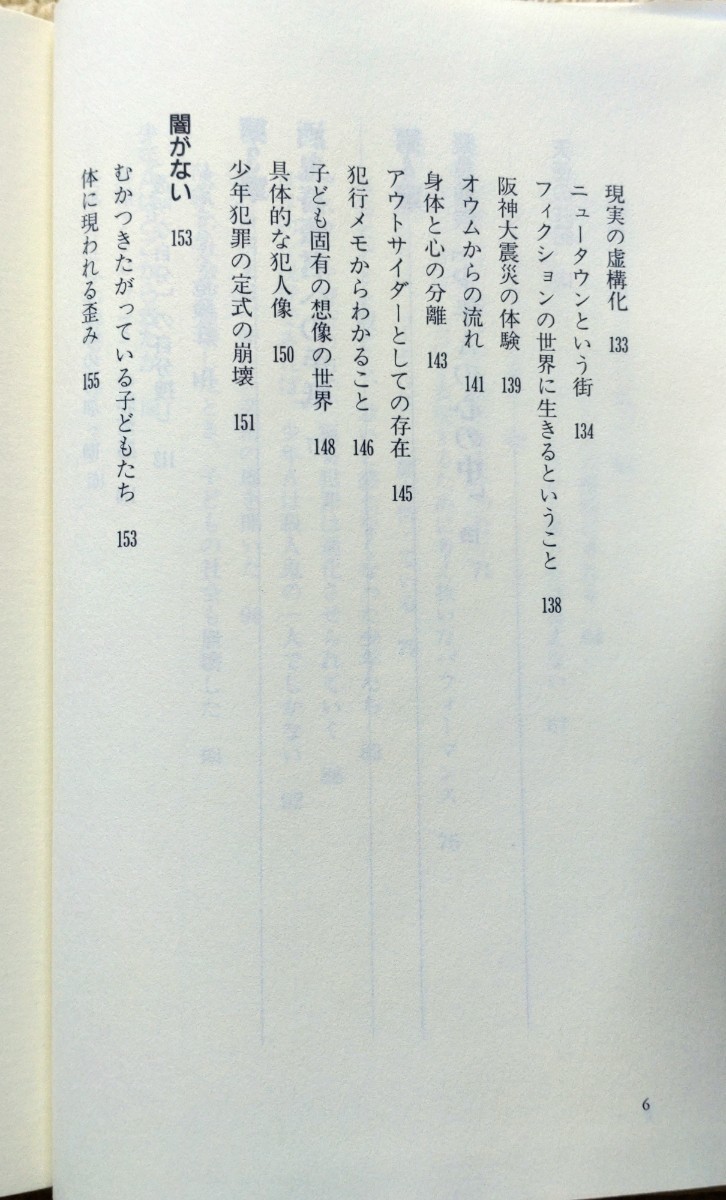 現実の虚構化 133
ニュータウンという街 134
フィクションの世界に生きるということ 138
阪神大震災の体験 139
オウムからの流れ 141
身体と心の分離 143
アウトサイダーとしての存在 145
犯行メモからわかること 146
子ども固有の想像の世界 148
具体的な犯人像 150
少年犯罪の定式の崩壊 151
闇がない 153
むかつきたがっている子どもたち 153
体に現われる歪み 155
6